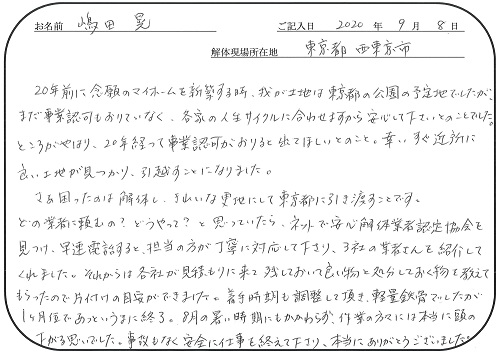 お名前 嶋田 晃 ご記入日 2020 年 9 月 8 日
解体現場所在地 東京都 西東京市
20年前に念願のマイホームを新築する時、我が土地は東京都の公園の予定地でしたが、
まだ事業認可もおりていなく、各家の人生サイクルに合わせますから安心して下さいとのことでした。
ところがやはり、20年経って事業認可がおりると出てほしいとのこと。幸いすぐ近所に
良い土地が見つかり、引越すことになりました。
さあ困ったのは解体し、きれいな更地にして東京都に引き渡すことです。
どの業者に頼むの？どうやって？と思っていたら、ネットで安心解体業者認定協会を
見つけ、早速電話すると、担当の方が丁寧に対応して下さり、3社の業者さんを紹介して
くれました。それからは各社が見積もりに来て残しておいて良い物と処分しておく物を教えて
もらったので片付けの目安ができました。着手時期も調整して頂き、軽量鉄骨でしたが
1ヶ月位であっというまに終了。8月の暑い時期にもかかわらず、作業の方々には本当に頭の
下がる思いでした。事故もなく安全に仕事を終えて下さり、本当にありがとうございました。